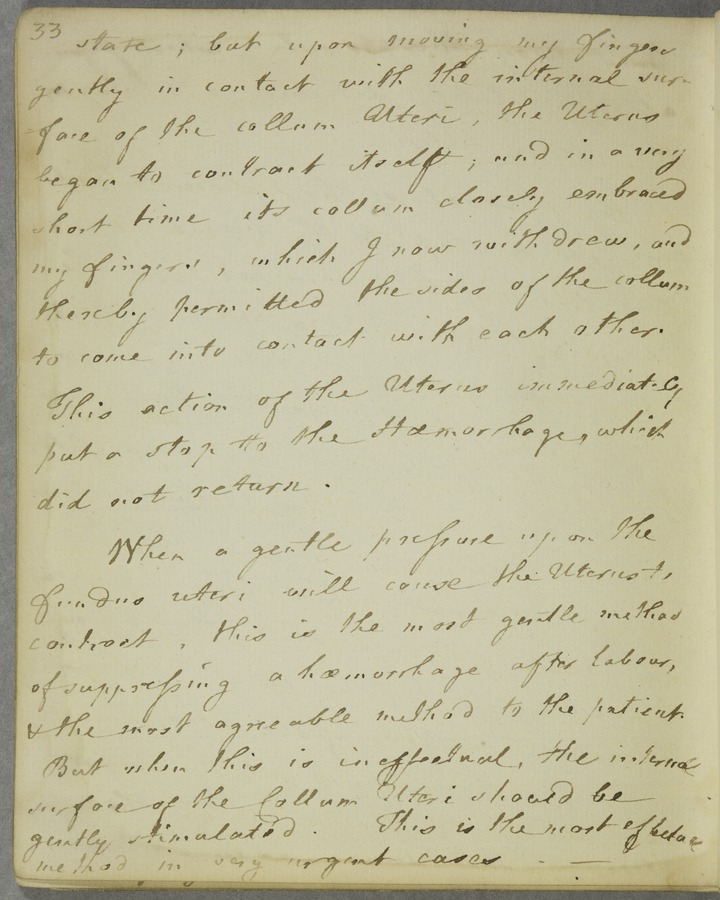 33
state ; but upon moving my fingers
gently in contact with the internal sur-
face of the collum Uteri, the Uterus
began to contract itself ; and in a very
short time its collum closely embraced
my fingers, which I now withdrew, and
thereby permitted the sides of the collum
to come into contact with each other.
This action of the Uterus immediately
put a stop to the Hæmorrhage, which
did not return.
When a gentle pressure upon the
fundus uteri will cause the Uterus to
contract, this is the most gentle method
of suppressing a hæmorrhage after labour,
& the most agreeable method to the patient.
But when this is ineffectual, the internal
surface of the Collum Uteri should be
gently stimulated. This is the most effectual
method in very urgent cases . —